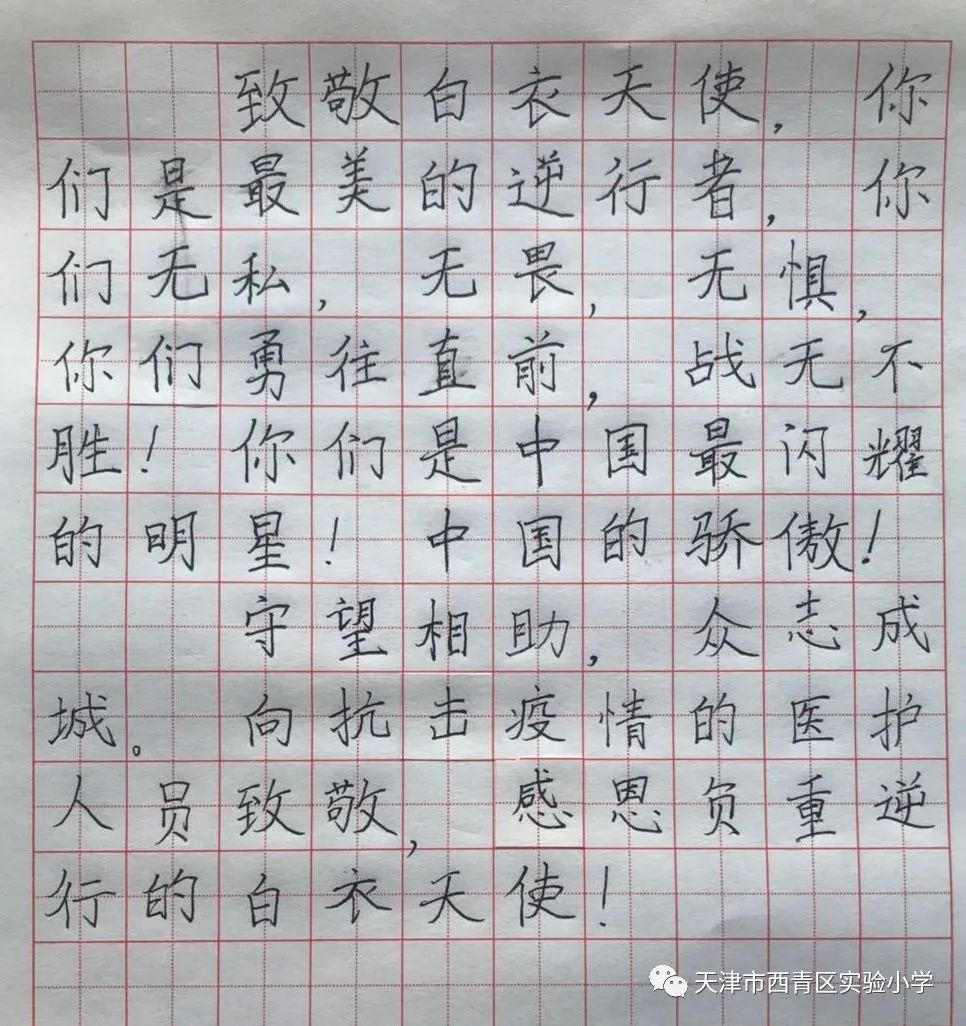 致敬白衣天使，你
们是最美的逆行者，你
们无私，无畏，无惧，
你们勇往直前，战无不
胜！你们是中国最闪耀
的明星！中国的骄傲！
守望相助，众志成
城。向抗击疫情的医护
人员致敬，感恩负重逆
行的白衣天使！
天津市西青区实验小学